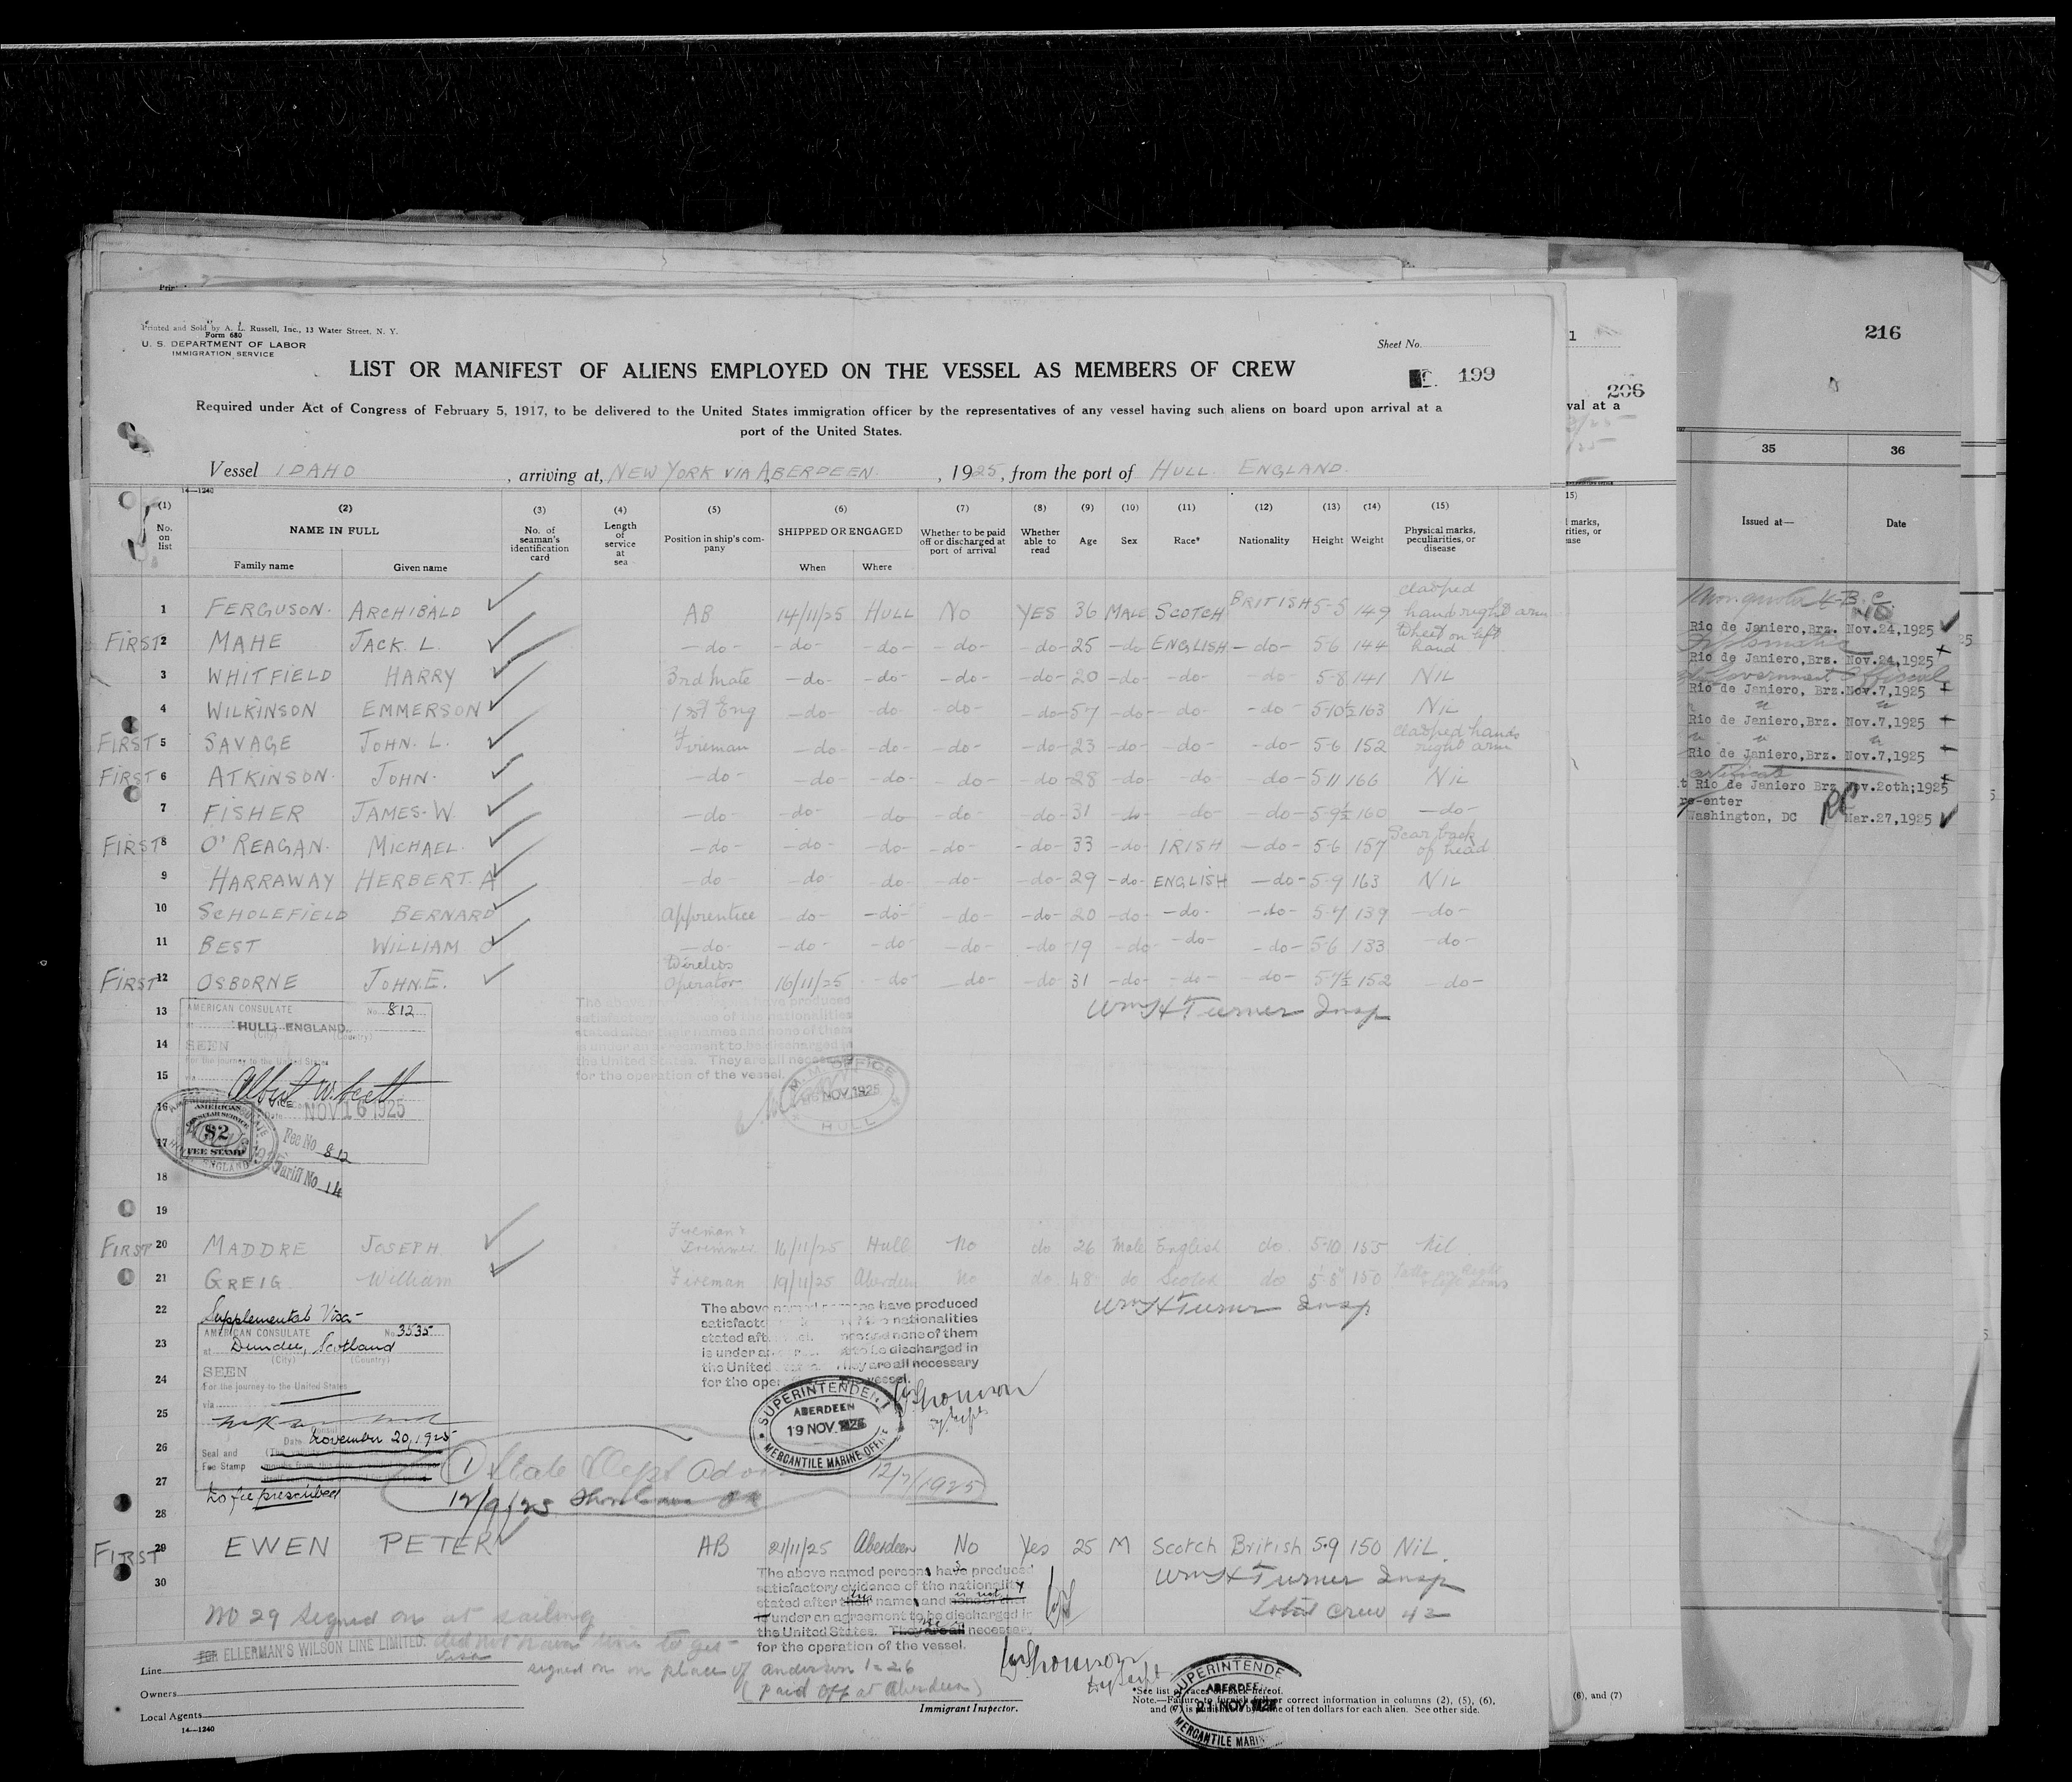 Printed and Sold by A. L. Russell, Inc., 13 Water Street, N. Y.
Form 680
U. S. DEPARTMENT OF LABOR
IMMIGRATION SERVICE
Sheet No.
LIST OR MANIFEST OF ALIENS EMPLOYED ON THE VESSEL AS MEMBERS OF CREW
199
Required under Act of Congress of February 5, 1917, to be delivered to the United States immigration officer by the representatives of any vessel having such aliens on board upon arrival at a
port of the United States.
Vessel IDAHO, arriving at, NEW YORK VIA ABERDEEN., 1925, from the port of HULL. ENGLAND.
14—1240
(1) (2) (3) (4) (5) (6) (7) (8) (9) (10) (11) (12) (13) (14) (15)
No. on list NAME IN FULL Family name Given name No. of seaman's identification card Length of service at sea Position in ship's company SHIPPED OR ENGAGED When Where Whether to be paid off or discharged at port of arrival Whether able to read Age Sex Race* Nationality Height Weight Physical marks, peculiarities, or disease
1 FERGUSON. ARCHIBALD AB 14/11/25 HULL NO YES 36 MALE SCOTCH BRITISH 5-5 149 clasped hand right arm
FIRST 2 MAHE JACK. L. -do- -do- -do- -do- -do- 25 -do- ENGLISH -do- 5-6 144 Wheel on left hand
3 WHITFIELD HARRY 3rd Mate -do- -do- -do- -do- 20 -do- -do- -do- 5-8 141 NIL
4 WILKINSON EMMERSON 1st Eng -do- -do- -do- -do- 57 -do- -do- -do- 5-10½ 163 NIL
FIRST 5 SAVAGE JOHN. L. Fireman -do- -do- -do- -do- 23 -do- -do- -do- 5-6 152 clasped hands right arm
FIRST 6 ATKINSON. JOHN. -do- -do- -do- -do- -do- 28 -do- -do- -do- 5-11 166 NIL
7 FISHER JAMES-W. -do- -do- -do- -do- -do- 31 -do- -do- -do- 5-9½ 160 -do-
FIRST 8 O'REAGAN. MICHAEL. -do- -do- -do- -do- -do- 33 -do- IRISH -do- 5-6 157 Scar back of head
9 HARRAWAY HERBERT. A -do- -do- -do- -do- -do- 29 -do- ENGLISH -do- 5-9 163 NIL
10 SCHOLEFIELD BERNARD Apprentice -do- -do- -do- -do- 20 -do- -do- -do- 5-7 139 -do-
11 BEST WILLIAM O -do- -do- -do- -do- -do- 19 -do- -do- -do- 5-6 133 -do-
FIRST 12 OSBORNE JOHN.E. Wireless Operator 16/11/25 -do- -do- -do- 31 -do- -do- -do- 5-7½ 152 -do-
13 AMERICAN CONSULATE No. 812
at HULL, ENGLAND.
(City) (Country)
14 SEEN
For the journey to the United States
15 via
VICE
16 Date NOV 16 1925
AMERICAN CONSULAR SERVICE
$2
FEE STAMP
Fee No 812
Tariff No 14
17
18
19
The above named persons have produced
satisfactory evidence of the nationalities
stated after their names and none of them
is under an agreement to be discharged in
the United States. They are all necessary
for the operation of the vessel.
M. M. OFFICE
16 NOV 1925
HULL
Wm H Turner Insp
FIRST 20 MADDRE JOSEPH Fireman & Trimmer 16/11/25 Hull No do 26 Male English do 5-10 155 Nil.
21 GREIG William Fireman 19/11/25 Aberdeen No do 48 do Scotch do 5'-8" 150
22 Supplemental Visa-
AMERICAN CONSULATE No. 3535
23 at Dundee, Scotland
(City) (Country)
SEEN
24 For the journey to the United States
via
25
Date November 20, 1925
26 Seal and
Fee Stamp
27
No fee prescribed
28
The above named persons have produced
satisfactory evidence of the nationalities
stated after their names and none of them
is under an agreement to be discharged in
the United States. They are all necessary
for the operation of the vessel.
Wm H Turner Insp
SUPERINTENDENT
ABERDEEN
19 NOV 1925
MERCANTILE MARINE OFFICE
① State Dept
12/9/25
12/7/1925
FIRST 29 EWEN PETER AB 21/11/25 Aberdeen No Yes 25 M Scotch British 5.9 150 NIL.
30
The above named persons have produced
satisfactory evidence of the nationality
stated after their names and none of them is not
is under an agreement to be discharged in
the United States. They are all necessary
for the operation of the vessel.
Wm H Turner Insp
Total Crew 42
No 29 signed on at sailing
FOR ELLERMAN'S WILSON LINE LIMITED. did not have time to get
visa
signed on in place of Anderson 1-26
(paid off at Aberdeen)
Line
Owners
Local Agents
14—1240
Immigrant Inspector.
*See list of races on back hereof.
Note.—Failure to furnish full or correct information in columns (2), (5), (6),
and (7) is punishable by a fine of ten dollars for each alien. See other side.
SUPERINTENDENT
ABERDEEN
21 NOV 1925
MERCANTILE MARINE
206
val at a
(6), and (7)
216
35 36
Issued at— Date
Rio de Janiero,Brz. Nov.24,1925
Rio de Janiero,Brz. Nov.24,1925
Government Official
Rio de Janiero, Brz. Nov.7,1925
Rio de Janiero,Brz. Nov.7,1925
Rio de Janiero,Brz. Nov.7,1925
Rio de Janiero Brz Nov.20th;1925
re-enter
Washington, DC Mar.27,1925